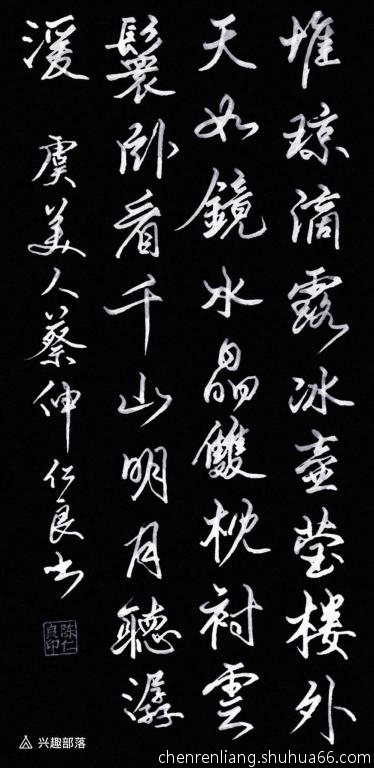 堆琼滴露冰壶莹楼外
天如鏡水晶雙枕衬雲
鬟卧看千山明月聽潺
湲
虞美人蔡伸仁良书
陈仁良印
兴趣部落
chenrenliang.shuhua66.com